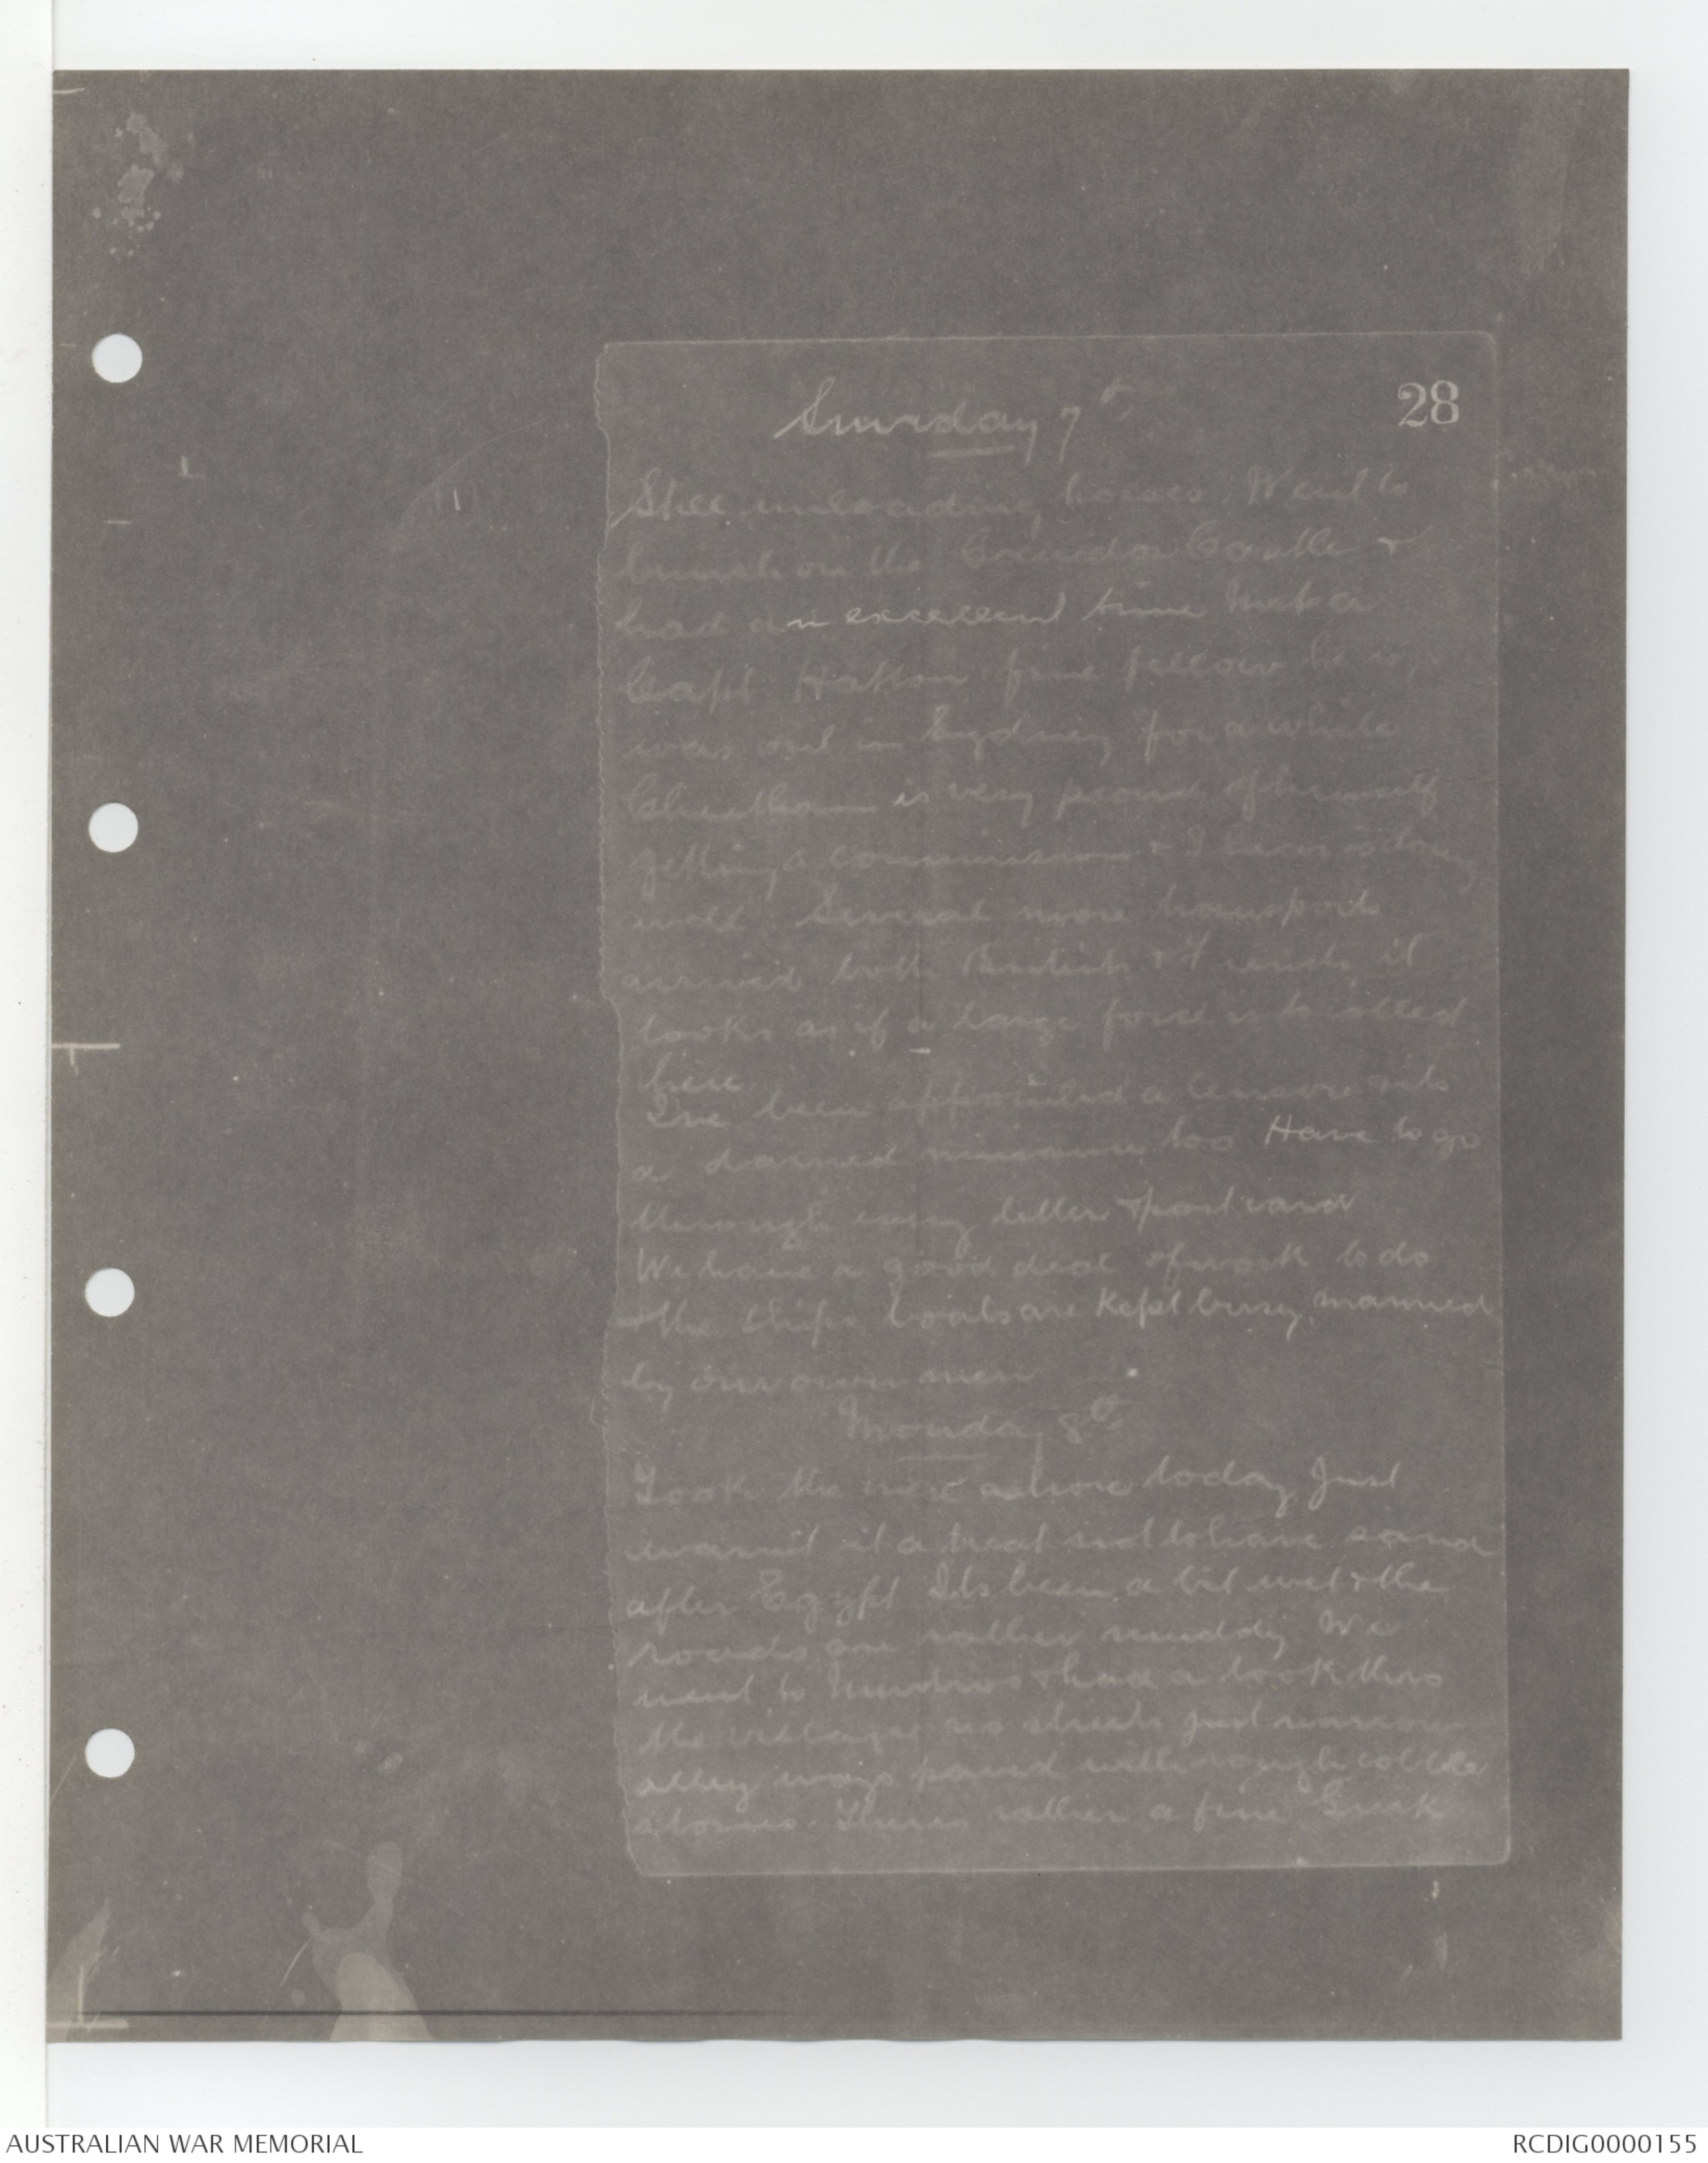 28
Sunday 7th
Still unloading horses. Went to
lunch on the Braemar Castle &
had an excellent time Met a
Capt Hatton fine fellow he is,
was out in Sydney for a while
Cheetham is very proud of himself
getting a commission & I hear is doing
well. Several more transports
arrived both British & French it
looks as if a large force is to collect
here
I've been appointed a Censor its
a darned nuisance too Have to go
through every letter & post card
We have a good deal of work to do
& the ships boats are kept busy, manned
by our own men
Monday 8th
Took the men ashore today Just
wasn't it a treat not to have sand
after Egypt Its been a bit wet & the
roads are rather muddy We
went to Mudros & had a look thro
the village no streets just narrow
alley ways paved with rough cobble
stones. Theres rather a fine Greek
AUSTRALIAN WAR MEMORIAL
RCDIG0000155